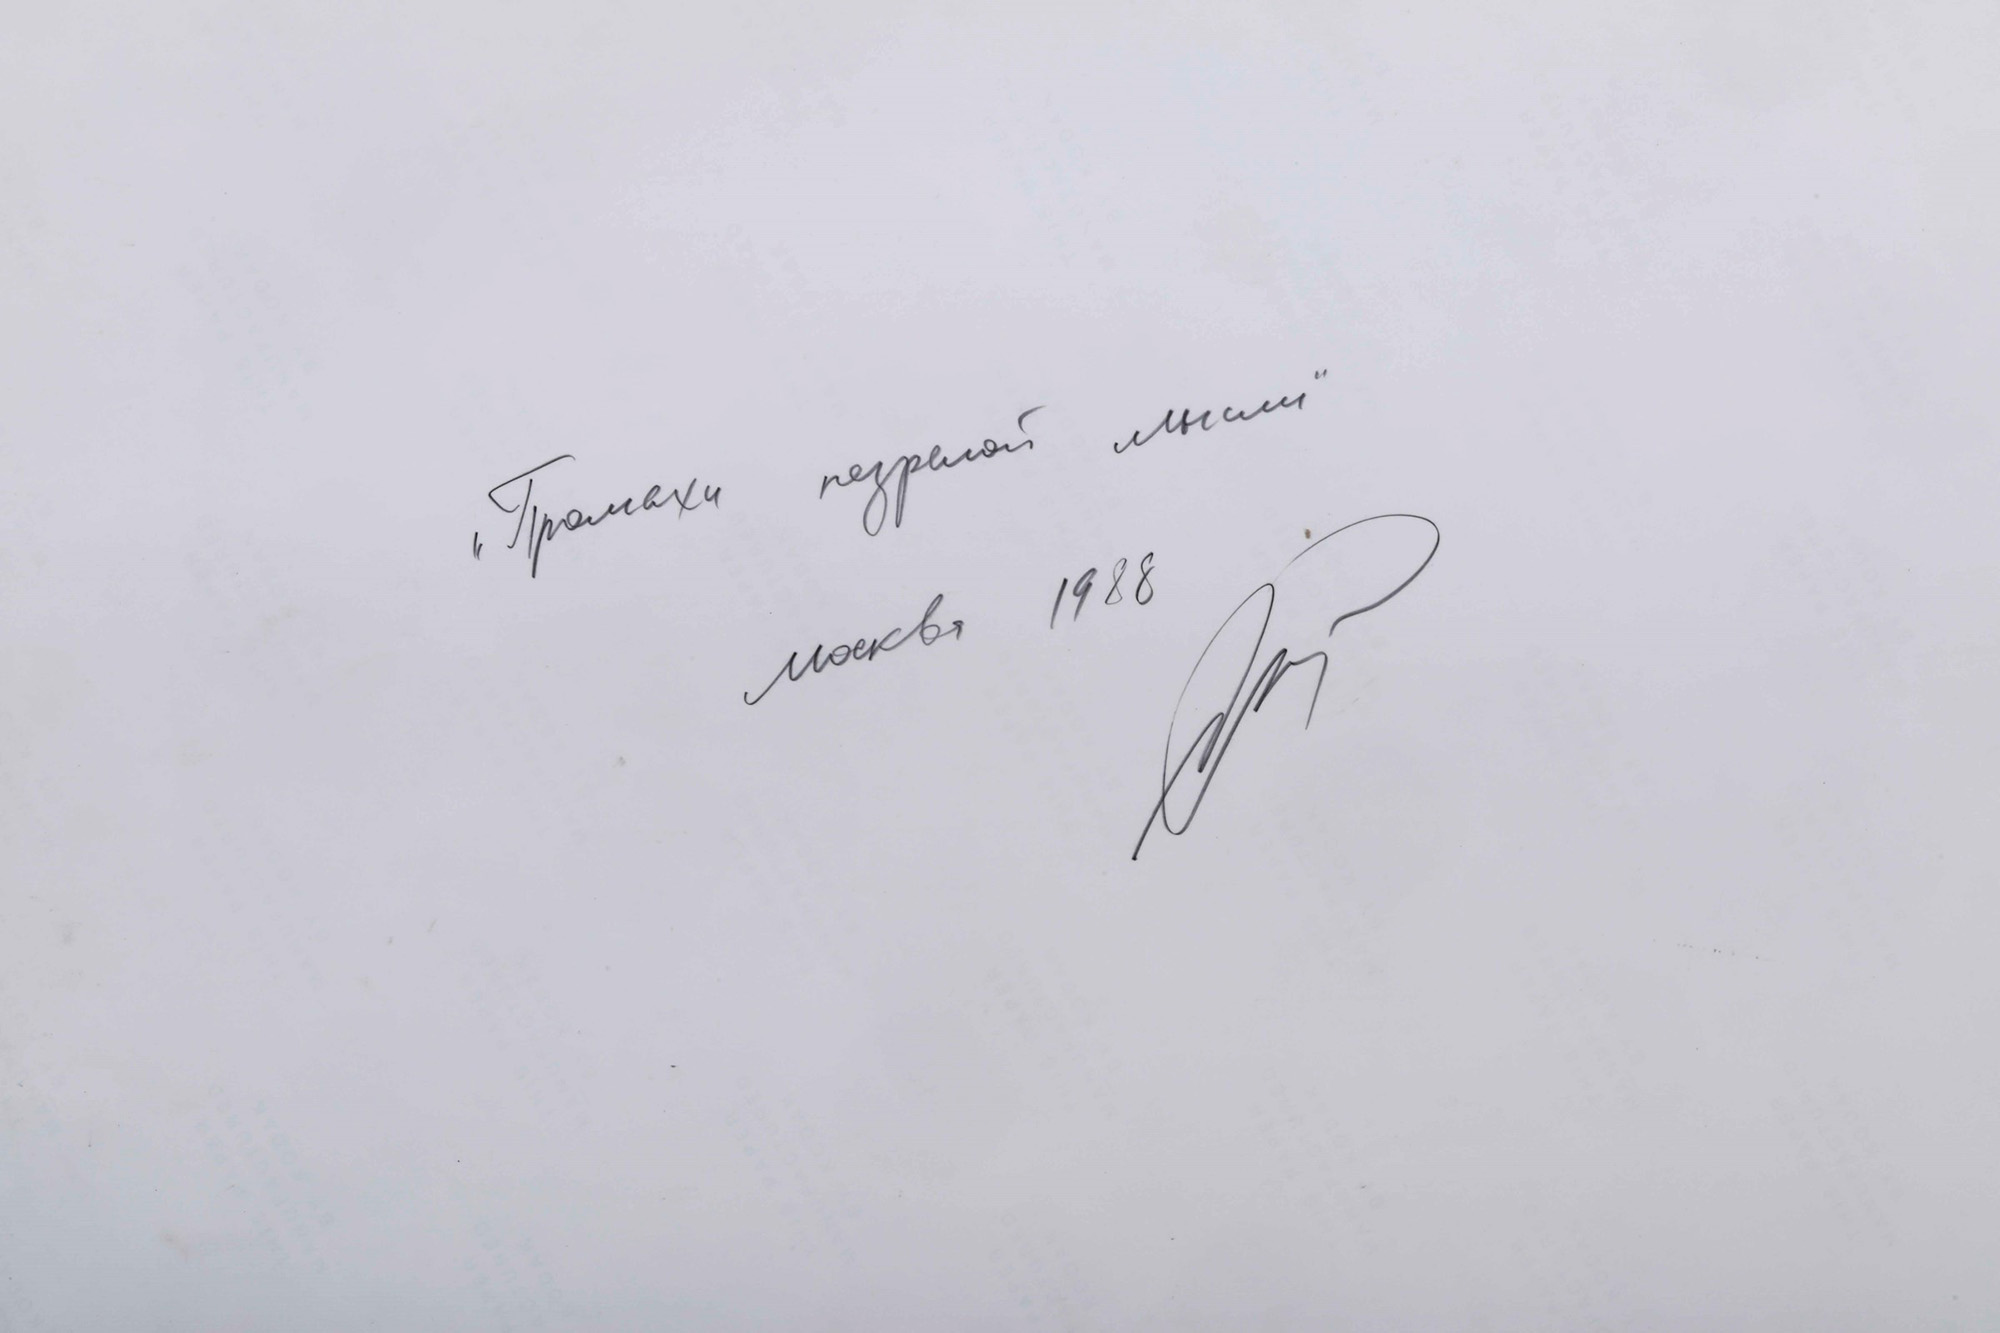 „Промахи незрелой мысли"
Москва 1988